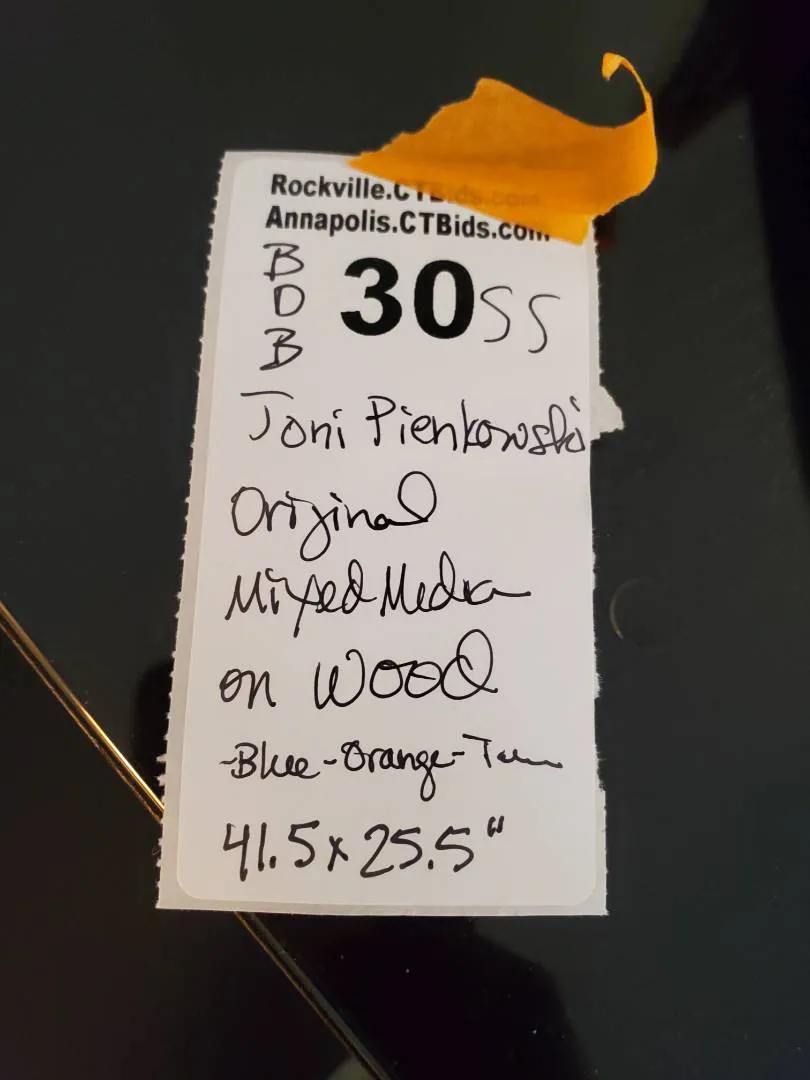 Rockville.CTBids.com
Annapolis.CTBids.com
B
D
B
30 SS
Joni Pienkowski
Original
Mixed Media
on Wood
-Blue-Orange-Tan
41.5 x 25.5"